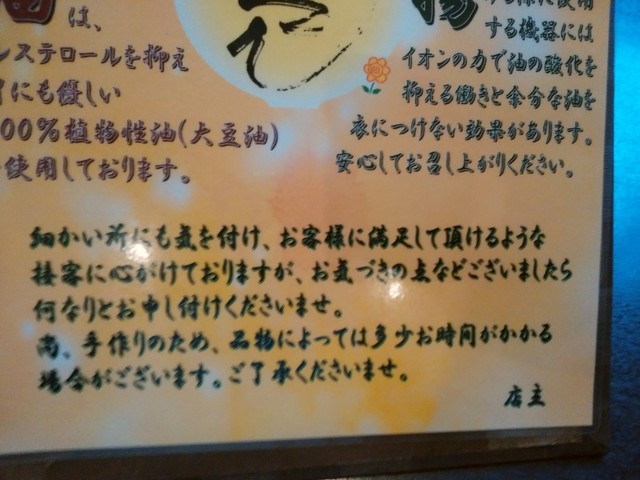 は、
レステロールを抑え
にも優しい
00%植物性油(大豆油)
使用しております。
揚
に使用
する機器には
イオンの力で油の酸化を
抑える働きと余分な油を
衣につけない効果があります。
安心してお召し上がりください。
細かい所にも気を付け、お客様に満足して頂けるような
接客に心がけておりますが、お気づきの点などございましたら
何なりとお申し付けくださいませ。
尚、手作りのため、品物によっては多少お時間がかかる
場合がございます。ご了承くださいませ。
店主